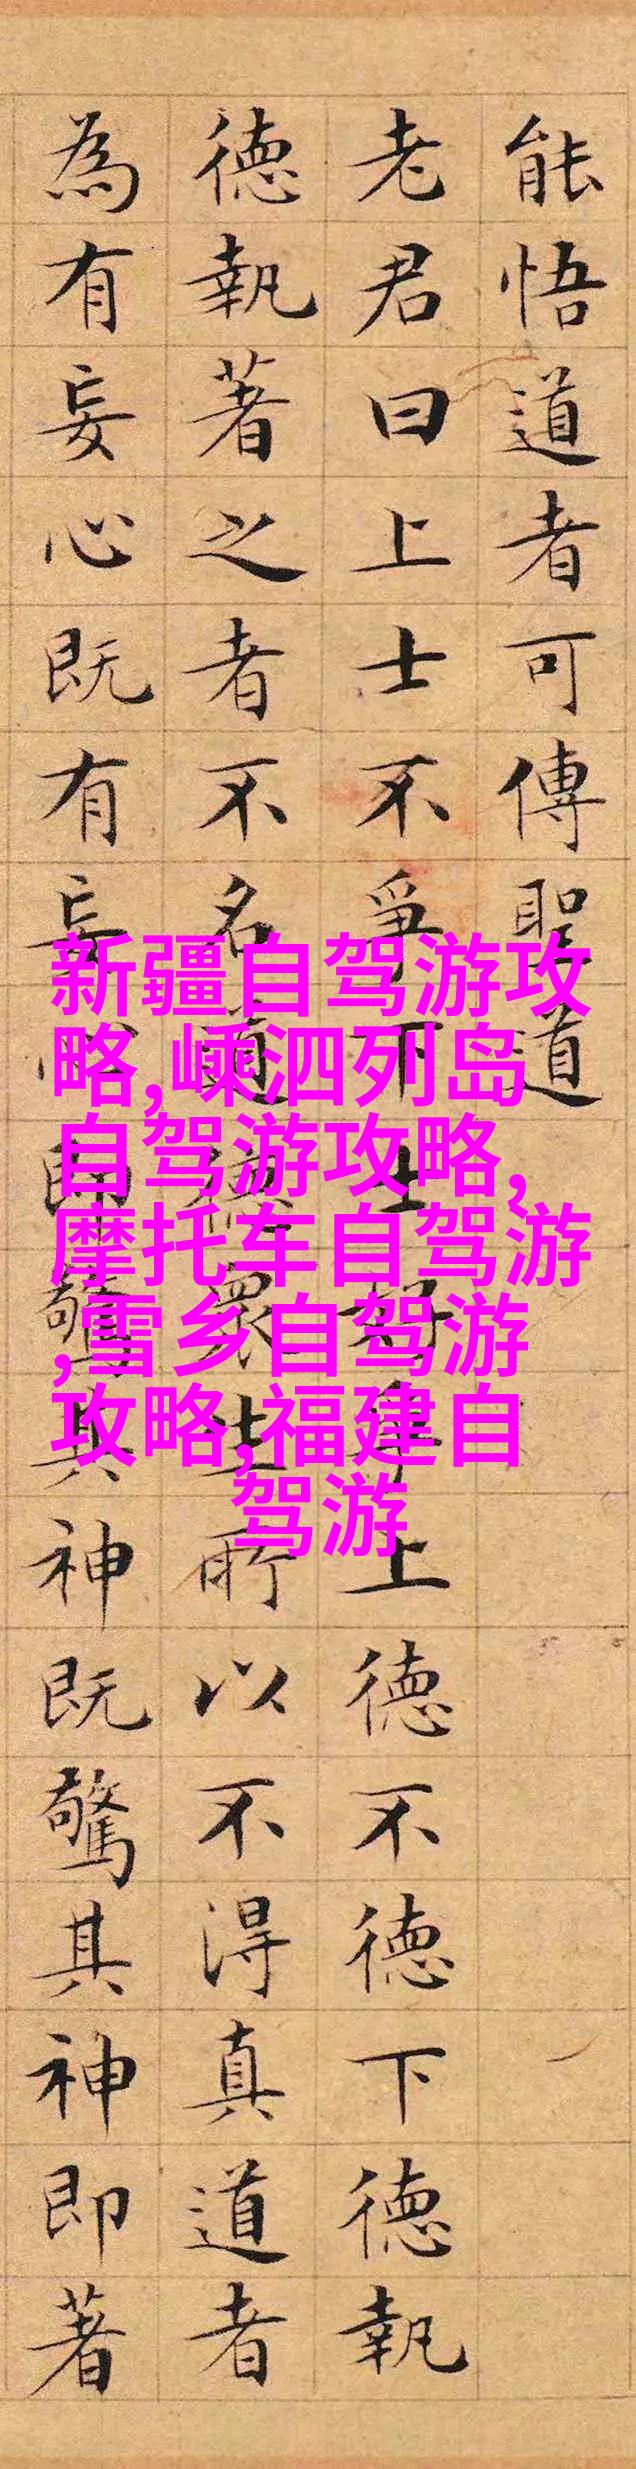 能悟道者可傳聖道
老君曰上士不爭下士好爭上德不德下德執
德執著之者不名道德衆生所以不得真道者
為有妄心既有妄心即驚其神既驚其神即著
新疆自驾游攻
略,嵊泗列岛
自驾游攻略,
摩托车自驾游
,雪乡自驾游
攻略,福建自
驾游